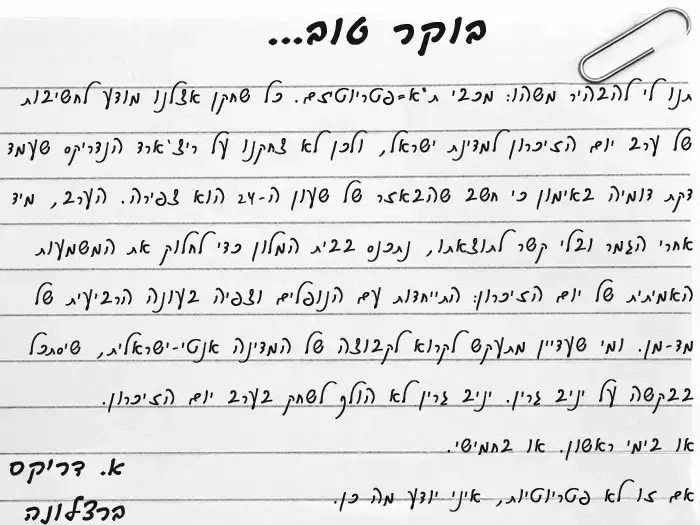 בוקר טוב...
תנו לי להבהיר משהו: מכבי ת"א=פטריוטיזם. כל שחקן אצלנו מודע לחשיבות
של ערב יום הזיכרון למדינת ישראל, ולכן לא צחקנו על ריצ'ארד הנדריקס שעמד
דקת דומיה באימון כי חשב שהבאזר של שעון ה-24 הוא צפירה. הערב, מיד
אחרי הגמר ובלי קשר לתוצאתו, נתכנס בבית המלון כדי לחלוק את המשמעות
האמיתית של יום הזיכרון: התייחדות עם הנופלים וצפיה בעונה הרביעית של
מד-מן. ומי שעדיין מתעקש לקרוא לקבוצה של המדינה אנטי-ישראלית, שיסתכל
בבקשה על יניב גרין. יניב גרין לא הולך לשחק בערב יום הזיכרון.
או בימי ראשון. או בחמישי.
אם זו לא פטריוטיות, איני יודע מה כן.
א. דריקס
ברצלונה